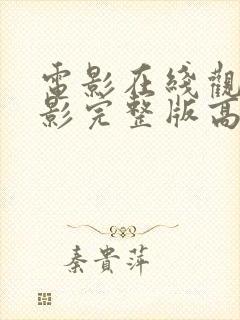 電影在綫觀
影完整版高
秦貴萍